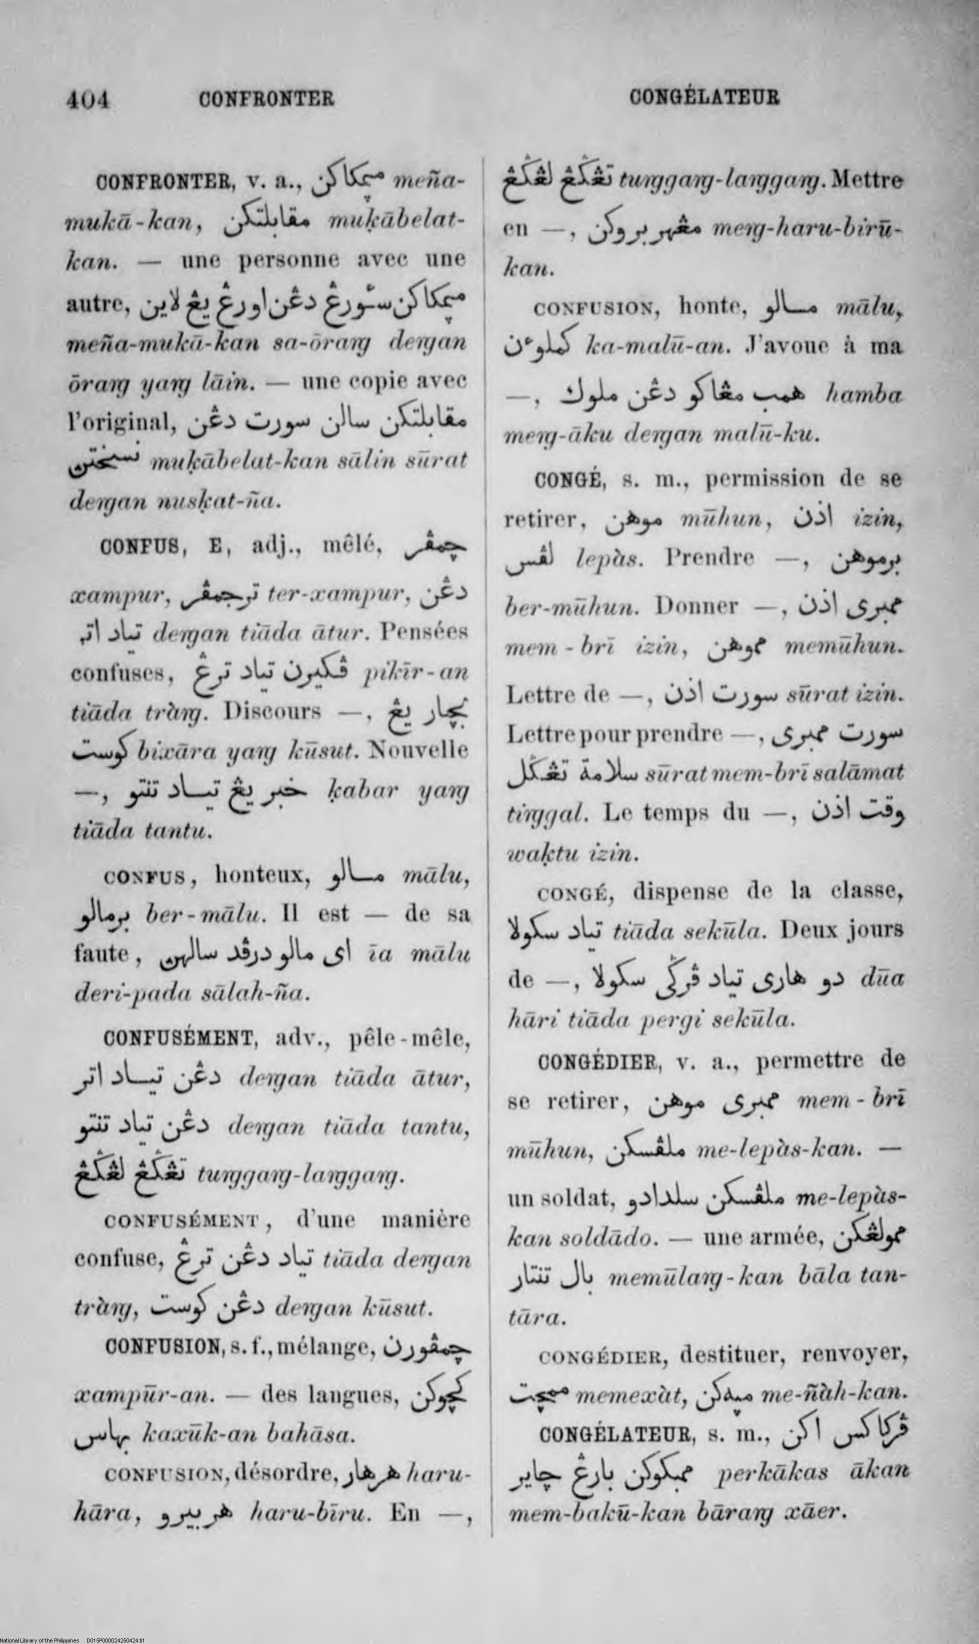 404 CONFRONTER CONGÉLATEUR
CONFRONTER, v. a., ميمكاكن meña-
mukā-kan, مقابلتكن muḳābelat-
kan. — une personne avec une
autre, ميمكاكن سئورڠ دڠن اورڠ يڠ لاين
meña-mukā-kan sa-ōraŋ deŋan
ōraŋ yaŋ lāin. — une copie avec
l'original, مقابلتكن سالن سورت دڠن
muḳābelat-kan sālin sūrat
deŋan nusḳat-ña.
CONFUS, E, adj., mêlé, چمڤر
xampur, ترچمڤر ter-xampur, دڠن
تياد اتر deŋan tiāda ātur. Pensées
confuses, ڤكيرن تياد ترڠ pikīr-an
tiāda tràŋ. Discours —, بچار يڠ
كوست bixāra yaŋ kūsut. Nouvelle
—, خبر يڠ تياد تنتو ḳabar yaŋ
tiāda tantu.
CONFUS, honteux, مالو mālu,
برمالو ber-mālu. Il est — de sa
faute, اى مالو درڤد سالهن īa mālu
deri-pada sālah-ña.
CONFUSÉMENT, adv., pêle-mêle,
دڠن تياد اتر deŋan tiāda ātur,
دڠن تياد تنتو deŋan tiāda tantu,
تڠڬڠ لڠڬڠ tuŋgaŋ-laŋgaŋ.
CONFUSÉMENT, d'une manière
confuse, تياد دڠن ترڠ tiāda deŋan
tràŋ, دڠن كوست deŋan kūsut.
CONFUSION, s. f., mélange, چمڤورن
xampūr-an. — des langues, كچوكن
بهاس kaxūk-an bahāsa.
CONFUSION, désordre, هرهار haru-
hāra, هربيرو haru-bīru. En —,
تڠڬڠ لڠڬڠ tuŋgaŋ-laŋgaŋ. Mettre
en —, مڠهربروكن meŋ-haru-birū-
kan.
CONFUSION, honte, مالو mālu,
كملوءن ka-malū-an. J'avoue à ma
—, همب مڠاكو دڠن ملوك hamba
meŋ-āku deŋan malū-ku.
CONGÉ, s. m., permission de se
retirer, موهن mūhun, اذن izin,
لڤس lepàs. Prendre —, برموهن
ber-mūhun. Donner —, ممبرى اذن
mem-brī izin, مموهن memūhun.
Lettre de —, سورت اذن sūrat izin.
Lettre pour prendre —, سورت ممبرى
سلامة تڠڬل sūrat mem-brī salāmat
tiŋgal. Le temps du —, وقت اذن
waḳtu izin.
CONGÉ, dispense de la classe,
تياد سكولا tiāda sekūla. Deux jours
de —, دو هارى تياد ڤرڬى سكولا dūa
hāri tiāda pergi sekūla.
CONGÉDIER, v. a., permettre de
se retirer, ممبرى موهن mem-brī
mūhun, ملڤسكن me-lepàs-kan. —
un soldat, ملڤسكن سلدادو me-lepàs-
kan soldādo. — une armée, ممولڠكن
بال تنتار memūlaŋ-kan bāla tan-
tāra.
CONGÉDIER, destituer, renvoyer,
ممچت memexàt, ميهكن me-ñàh-kan.
CONGÉLATEUR, s. m., ڤركاكس اكن
ممبكوكن بارڠ چاير perkākas ākan
mem-bakū-kan bāraŋ xāer.
National Library of the Philippines